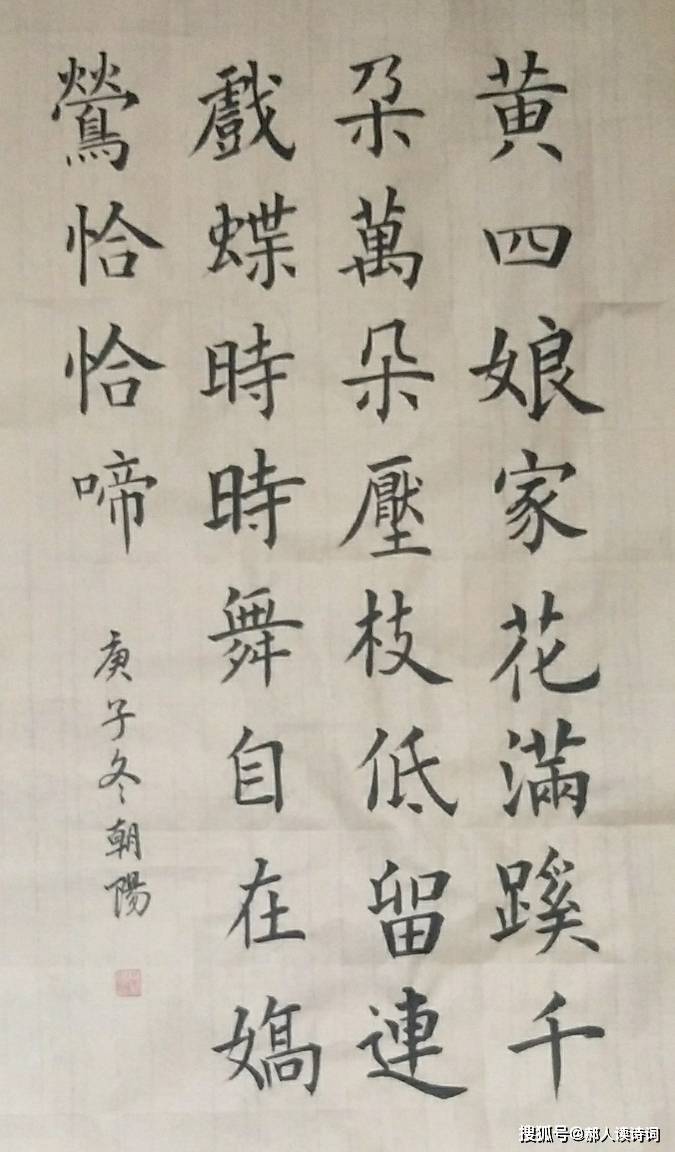 黄四娘家花滿蹊千
朵萬朵壓枝低留連
戲蝶時時舞自在嬌
鶯恰恰啼
庚子冬朝陽
搜狐号@郝人读诗词